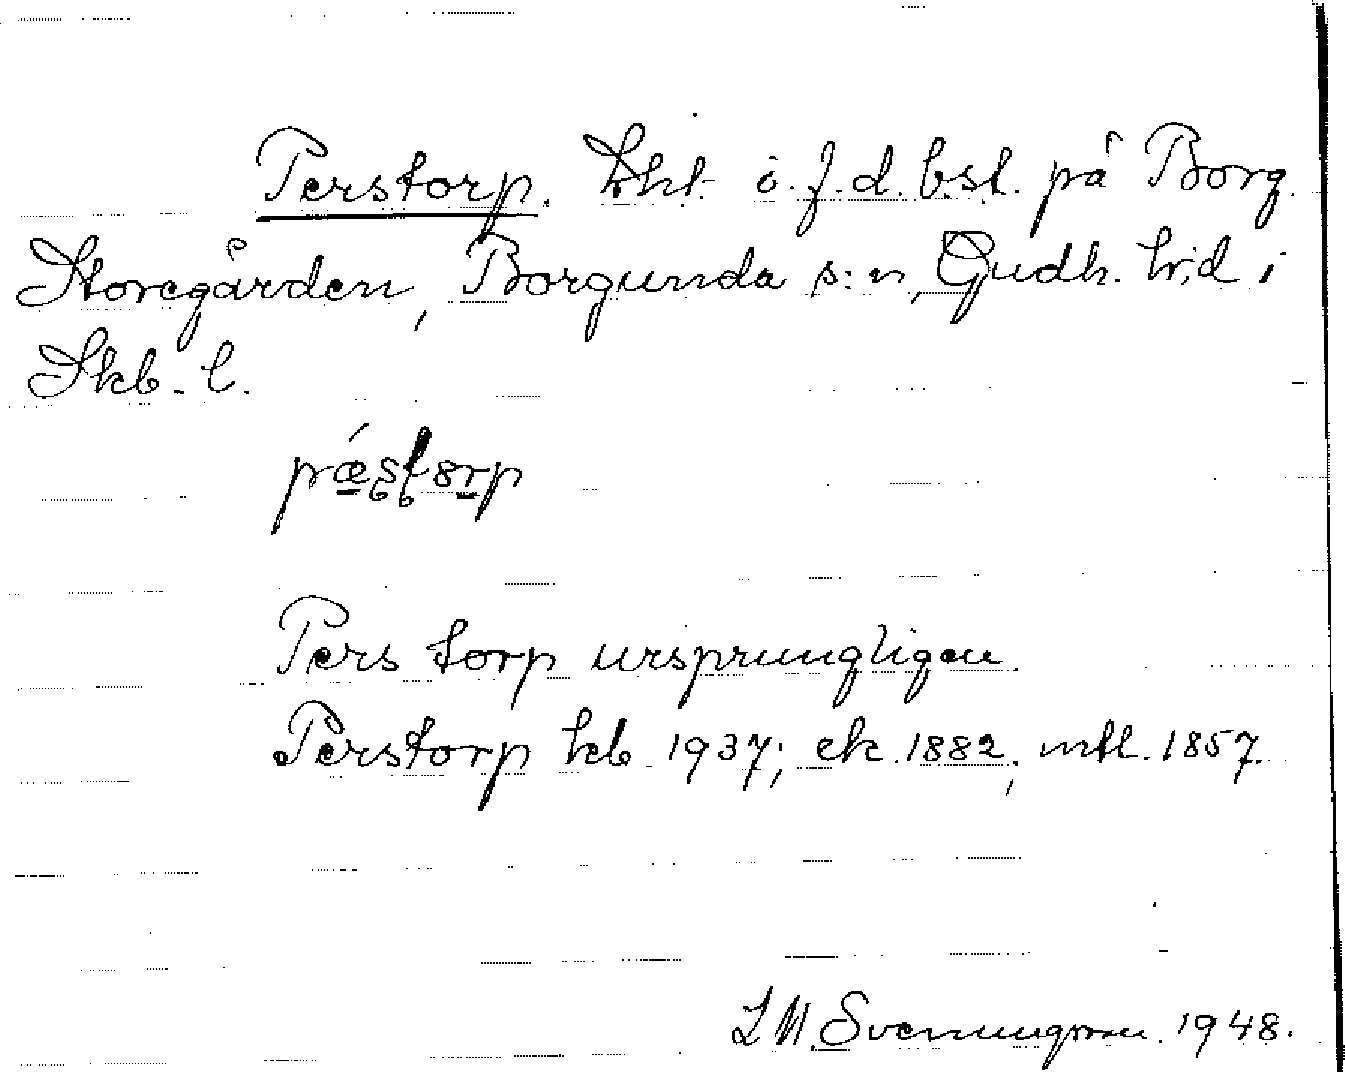 Perstorp. Lht. i. f. d. bst. på Borg.
Storegården, Borgunda s:n, Gudh. hd i
Skb. l.
Pers torp ursprungligen
Perstorp kb 1937; ek. 1882, mtl. 1857.
Svenungsson. 1948.